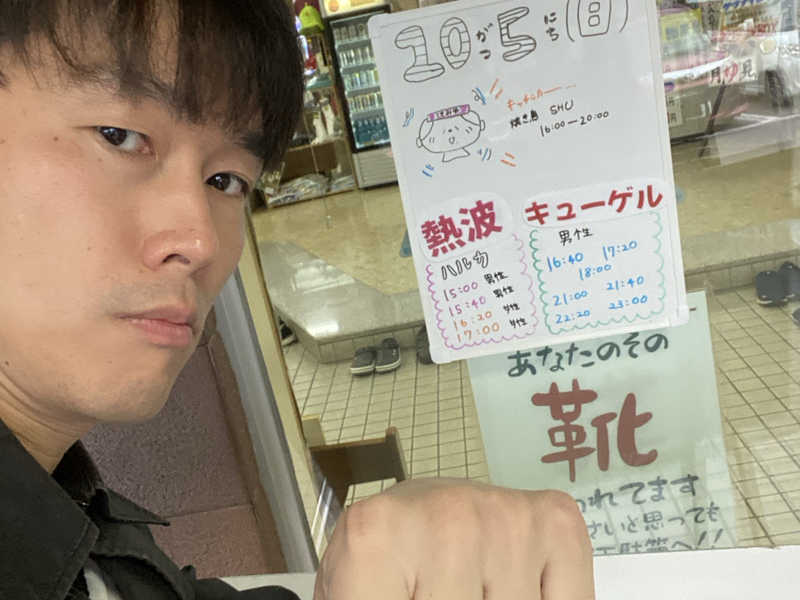 10がつ5にち(日)
キッチンカー…
焼き鳥 SHU
16:00ー20:00
熱波
ハルカ
15:00 男性
15:40 男性
16:20 女性
17:00 女性
キューゲル
男性
16:40 17:20
18:00
21:00 21:40
22:20 23:00
あなたのその
靴
われてます
さいと思っても
下駄箱へ!!
月ゆ見